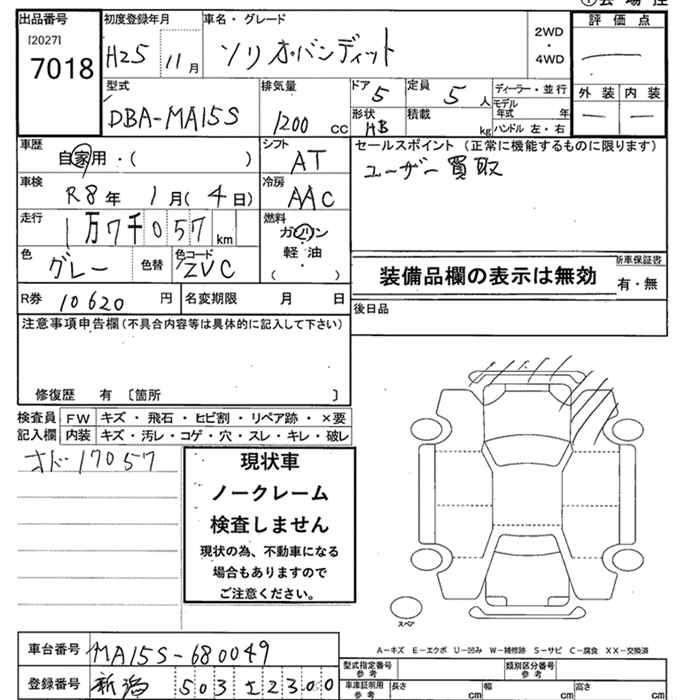 出品番号 初度登録年月 車名・グレード 評価点
[2027]
7018 H25 11月 ソリオ・バンディット 2WD・4WD
型式 排気量 ドア 5 定員 5人 ディーラー・並行 外装 内装
DBA-MA15S 1200cc 形状 HB 積載 kg モデル年式 年
ハンドル 左・右
車歴 自家用・( ) シフト AT セールスポイント(正常に機能するものに限ります)
ユーザー買取
車検 R8年 1月(4日) 冷房 AAC
走行 1万7千057km 燃料 ガソリン
軽油
( ・ )
色 グレー 色替 色コード ZVC 装備品欄の表示は無効 新車保証書
有・無
R券 10620円 名変期限 月 日 後日品
注意事項申告欄(不具合内容等は具体的に記入して下さい)
修復歴 有 〔箇所 〕
検査員 FW キズ・飛石・ヒビ割・リペア跡・×要
記入欄 内装 キズ・汚レ・コゲ・穴・スレ・キレ・破レ
オド17057
現状車
ノークレーム
検査しません
現状の為、不動車になる
場合もありますので
ご注意ください。
スペア
A-キズ E-エクボ U-凹み W-補修跡 S-サビ C-腐食 XX-交換済
車台番号 MA15S-680049 型式指定番号 参考 類別区分番号 参考
登録番号 新潟 503 2300 車庫証明用 参考 長さ cm 幅 cm 高さ cm